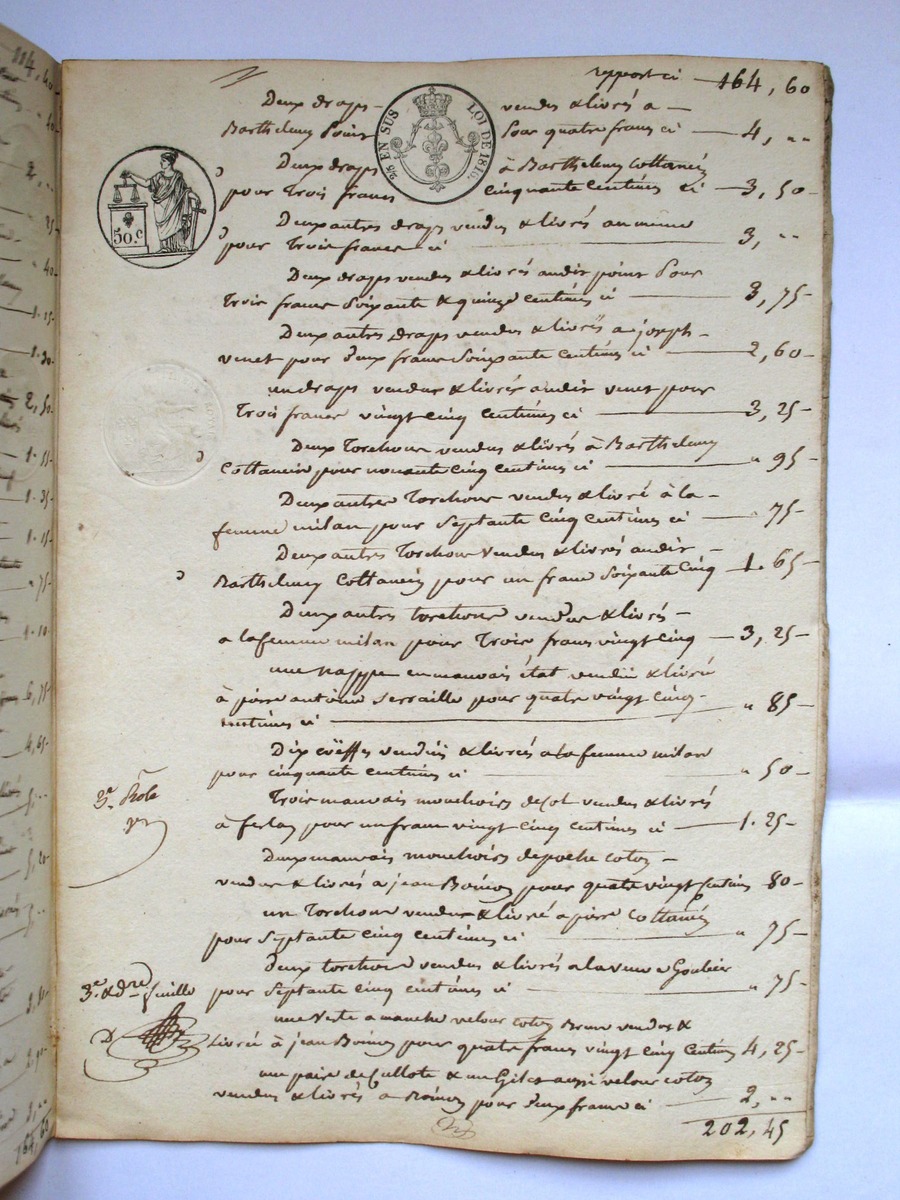 rapport ci — 164, 60
Deux draps vendus & livrés a —
Barthelemy Point pour quatre francs ci — 4, ,,
5/5 EN SUS LOI DE 1816.
50.c
Deux draps à Barthelemy Cottancin
pour Trois francs cinquante Centimes ci — 3, 50
Deux autres draps vendus & livrés au même
pour Trois francs ci — 3, ,,
Deux draps vendus & livrés audit point pour
Trois francs Soixante & quinze centimes ci — 3, 75
Deux autres draps vendus & livrés a joseph
venet pour Deux francs Soixante Centimes ci — 2, 60
un draps vendus & livrés audit venet pour
Trois francs vingt cinq Centimes ci — 3, 25
Deux Torchons vendus & livrés à Barthelemy
Cottancin pour nonante cinq centimes ci — " 95
Deux autres Torchons vendus & livré à la
femme milan pour Septante Cinq Centimes ci — " 75
Deux autres Torchons vendus & livrés audit
Barthelemy Cottancin pour un franc Soixante Cinq — 1. 65
Deux autres torchons vendus & livrés
a la femme milan pour Trois francs vingt cinq — 3, 25
une nappe en mauvais état vendue & livrée
à pierre antoine Serraille pour quatre vingt cinq
centimes ci — " 85
Dix cöeffes vendües & livrées a la femme milan
pour cinquante centimes ci — " 50
3.e Role
Trois mauvais mouchoirs de col vendus & livrés
à ferlay pour un franc vingt cinq centimes ci — 1. 25
Deux mauvais mouchoirs de poche coton
vendus & livrés a jean Boinon pour quatre vingt Centimes 80
un Torchon vendus & livré a pierre Cottancin
pour Septante Cinq Centimes ci — " 75
Deux torchons vendus & livrés a la veuve Goubier
pour Septante cinq Centimes ci — " 75
3.e & dre feuille
une Veste a manche velour coton Brune vendus &
livrée à jean Boinon pour quatre francs vingt cinq Centimes 4, 25
une paire de Cullote & un Gilet aussi velour coton
vendus & livrés a Boinon pour Deux francs ci — 2, ,,
202, 45
114, 40
2, 50
1. 35
1. 15
" 75
1. 10
6, 75
4, 65
5, 20
164, 60